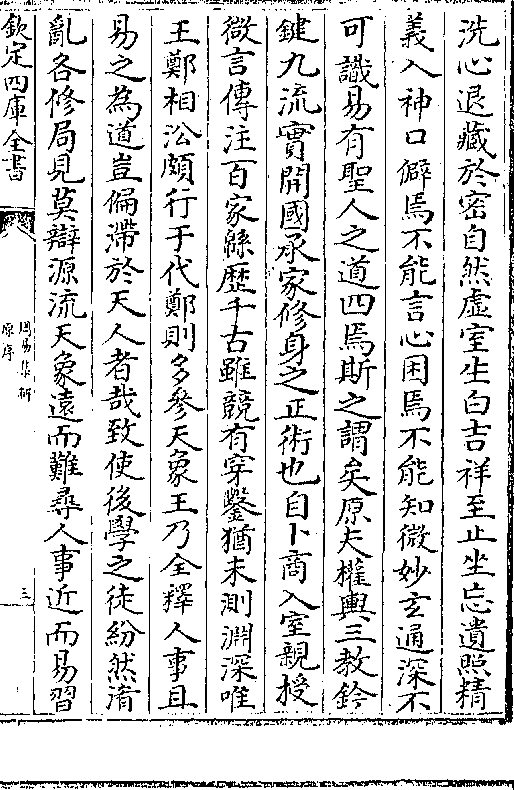 洗心退藏於密自然虛室生白吉祥至止坐忘遺照精
義入神口僻焉不能言心困焉不能知微妙玄通深不
可識易有聖人之道四焉斯之謂矣原夫權輿三教鈐
鍵九流實開國承家修身之正術也自卜商入室親授
微言傳注百家緜歷千古雖競有穿鑿猶未測淵深唯
王鄭相沿頗行于代鄭則多參天象王乃全釋人事且
易之為道豈偏滯於天人者哉致使後學之徒紛然淆
亂各修局見莫辯源流天象遠而難尋人事近而易習
欽定四庫全書
周易集解
原序
三